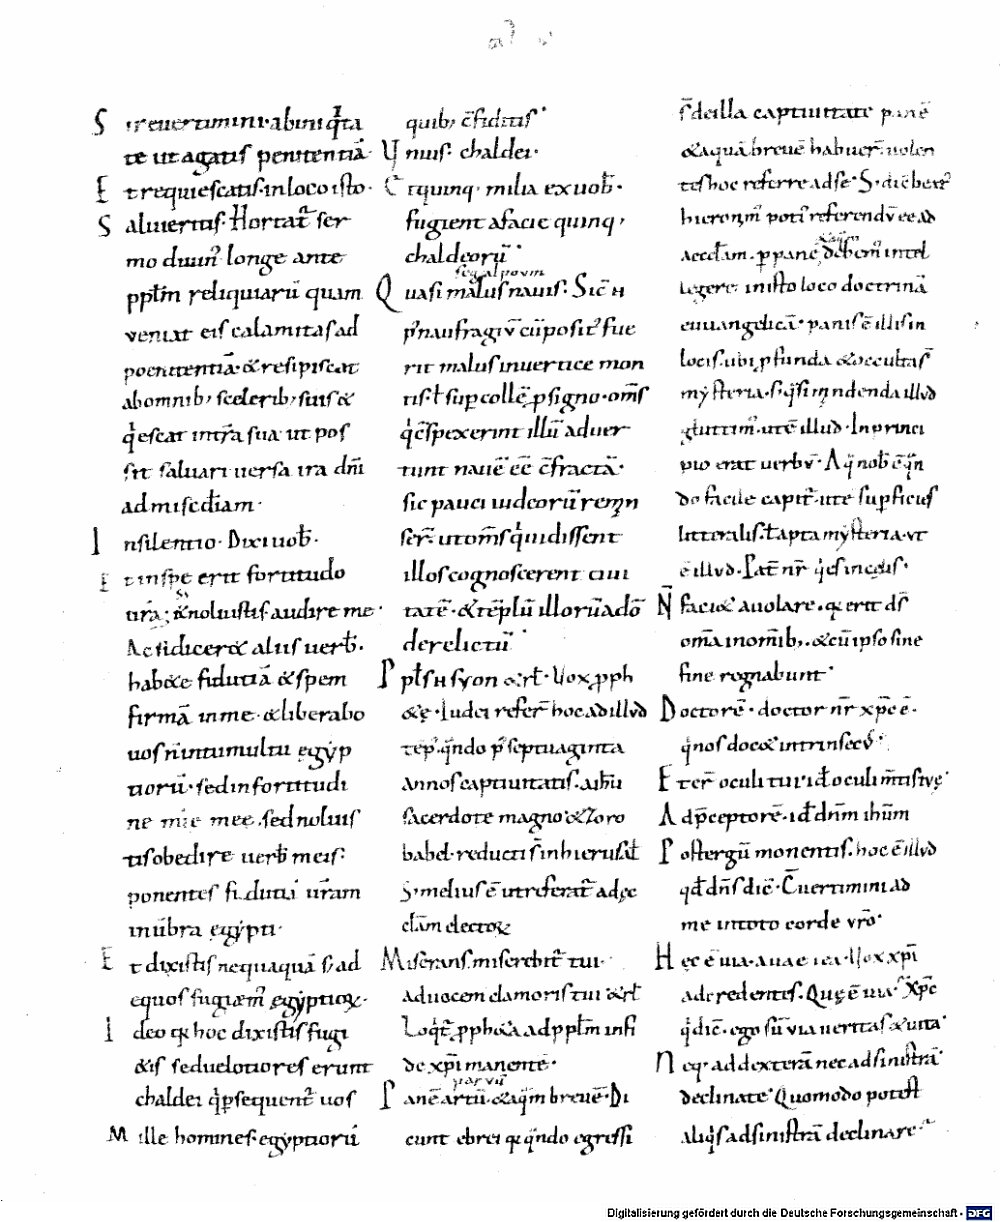 S i reuertimini· ab iniq̅ta
te ut agatis penitentiā·
E t requiescatis· in loco isto·
S alui eritis· Hortat᷑ ser
mo diuin᷑ longe ante
pp̅lm reliquiarū quam
veniat eis calamitas ad
poenitentiā· & resipiscat
ab omnib; sceleribus suis &
q̇escat in terra sua ut pos
sit saluari uersa ira dn̅i
ad misc̅diam·
I n silentio· Dixi uob̅·
E t in spe erit fortitudo
ur̅a; & noluistis audire me·
Ac si dicer& alus uerb̅·
habete fidutiā & spem
firmā in me· & liberabo
uos n̅ in tumultu egyp
tiorū· sed in fortitudi
ne mie mee· sed noluis
tis obedire uerb̅ meis·
ponentes fidutiā ur̅am
in ūbra egypti·
E t dixistis nequaquā s; ad
equos fugiem᷑ egyptioꝝ·
I deo qꝫ hoc dixistis fugi
&is seduelotiores erunt
chaldei q̇ persequent᷑ uos
M ille homines· egyptiorū
quib; c̅fiditis·
U nius· chaldei·
E t quinq· milia ex uob̅·
fugient a facie quinq;
chaldeorū·
Q uasi malus nauis· Sic̅
p᷑ naufragiū cū posit᷑ fue
rit malus in uertice mon
tis· ł sup collē p signo· om̅s
q̇ c̅spexerint illū aduer
tunt nauē ee̅ c̅fractā·
sic pauci iudeorū reman
ser̅· ut om̅s q̇ uidissent
illos cognoscerent ciui
tatē· & tēplū illorū a do̅
derelictū·
P pl̅s syon & rl̅· Uox pph
&ę· Iudei refer̅ hoc ad illud
tēp᷑· q̅ndo p᷑ septuaginta
annos captiuitatis· a ihu̅
sacerdote magno & Zoro
babel· reducti s̅ in hierusal̅
S; melius ē ut referat᷑ ad ęc
clam electoꝝ
M iserans· miserebit᷑ tui·
ad uocem clamoris tui & rl̅
Loq̇t᷑ pph&a ad pp̅lm in fi
de xp̅i manentē·
P anē artū· & aq̅m breuē· Di
cunt ebrei qꝫ q̅ndo egressi
s̅ de illa captiuitate panē
& aquā breuē habuer̅· uolen
tes hoc referre ad se· S; dic̅ beat᷑
hieronim᷑ poti᷑ referendū ee̅ ad
aeccl̅am· p panē debem᷑ intel
legere in isto loco doctrinā
euuangelicā· panis ē illis in
locis· ubi pfunda & occultas̅
mysteria· s; q̇si mandenda illud
glutim᷑· ut ē illud· In princi
pio erat uerbū· Aq̅ nob̅ ē q̅n
do facile capit᷑· ut ē supficies
litteralis· ł apta mysteria· ut
ē illud· Pat̅ nr̅ q̇ es in celis·
N̅ faci& auolare· qꝫ erit ds̅
om̅a in om̅ib;· & cū ipso sine
fine regnabunt·
D octorē· doctor nr̅ xp̅c ē·
q̇ nos doc& intrinsec᷑·
E t er̅ oculi tui· id̅ oculi m̅tis tuę·
A d p̅ceptorē· id̅ dn̅m ihu̅m
P ost ergū monentis· hoc ē illud
qd̅ dn̅s dic̅· C̅uertimini ad
me in toto corde vr̅o·
H ęc ē uia· Uox xp̅i
ad credentes· Quę ē uia xp̅c
q̇ dic̅· ego sū via ueritas & uita·
N eq· ad dexterā nec ad sinistrā·
declinate· Quomodo potest
aliq̇s ad sinistrā declinare
Digitalisierung gefördert durch die Deutsche Forschungsgemeinschaft - DFG